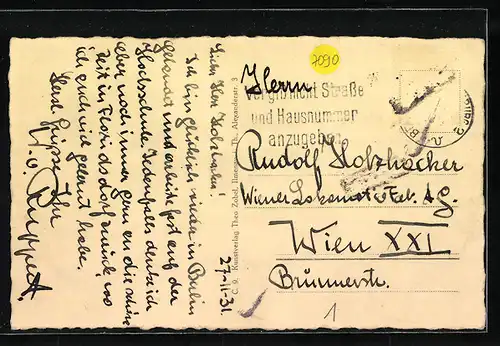 Lieber Herr Holzhacker!
Ich bin glücklich wieder in Berlin
gelandet und arbeite fest auf der
Hochschule. Jedenfalls denke ich
aber noch immer gern an die schöne
Zeit in Floridsdorf zurück, wo
ich auch viel gelernt habe.
Beste Grüsse Ihr
W. v. Ruppert.
27-11-31.
C. 9. Kunstverlag Theo Zobel, Ilmenau i. Th. Alexanderstr. 3
7090
Vergiß nicht Straße
und Hausnummer
anzugeben
Herrn
Rudolf Holzhacker
Wiener Lokomotivfbk. AG.
Wien XXI
Brünnerstr.
1